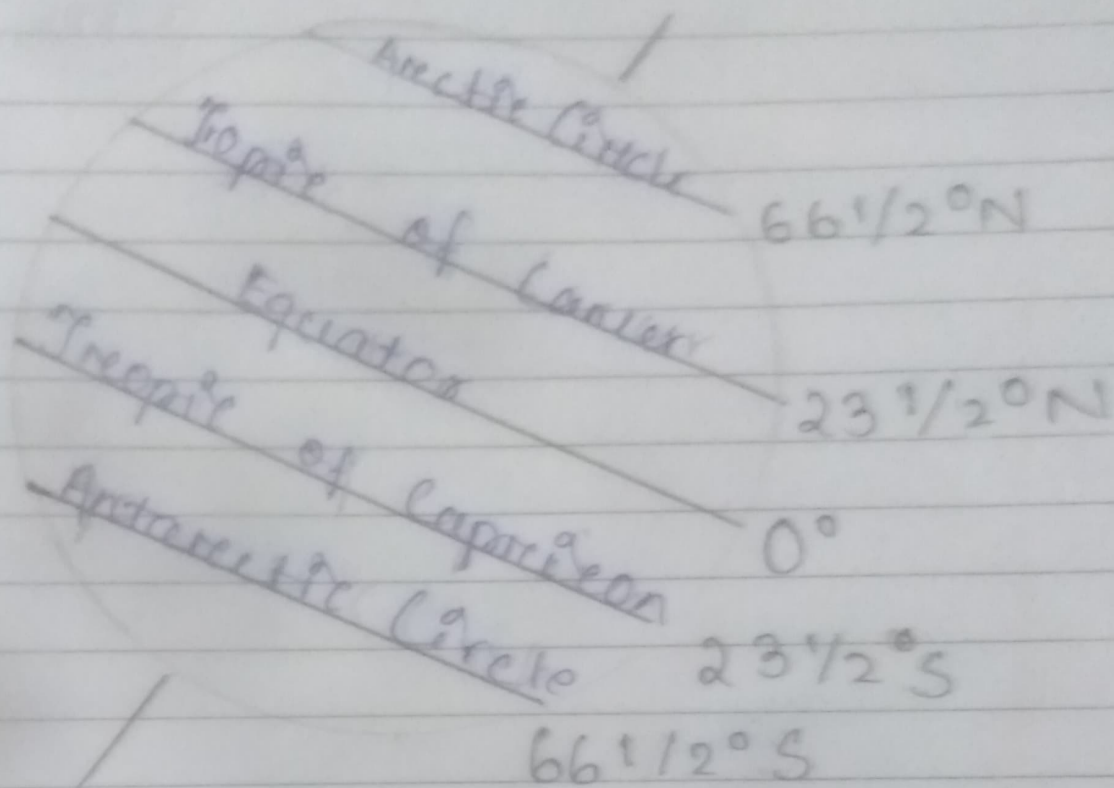 Arectic Circle
66 1/2°N
Tropic of Cancer
23 1/2°N
Equator
0°
Treopic of Capricon
23 1/2°S
Antarectic Circle
66 1/2°S